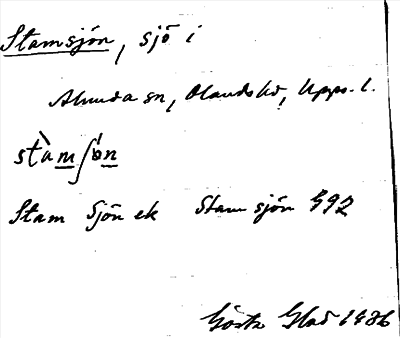 Stamsjön, sjö i
Almunda sn, Olands hd, Upps. l.
stàmʃön
Stam Sjön ek Stam sjön G92
Gösta Glad 1936